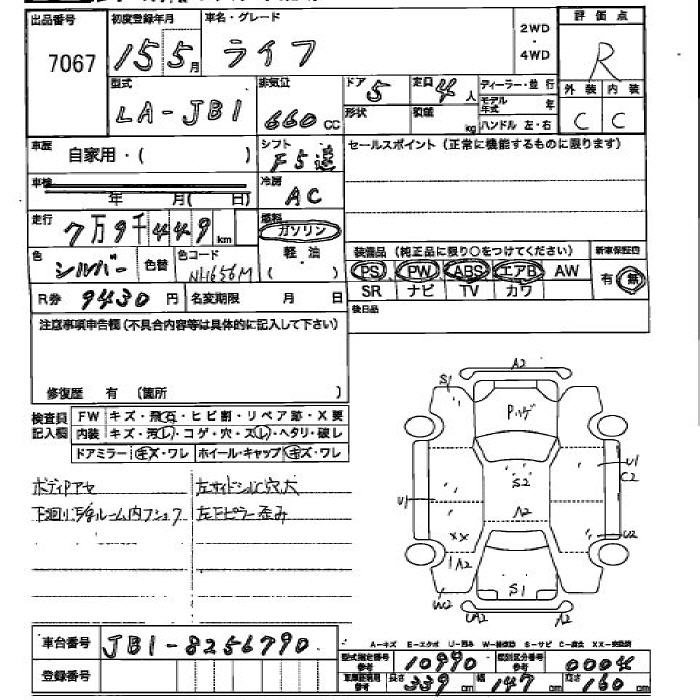 出品番号 7067
初度登録年月 15 5月
車名・グレード ライフ
2WD・4WD
評価点 R
外装 C 内装 C
型式 LA-JB1
排気量 660 cc
ドア 5 定員 4人
形状 積載 kg
ディーラー・並行
モデル年式 年
ハンドル 左・右
車歴 自家用・( )
シフト F5速
セールスポイント (正常に機能するものに限ります)
車検 年 月( 日)
冷房 AC
走行 7万9千449km
燃料 ガソリン 軽油 ( )
色 シルバー 色替 色コード NH656M
装備品 (純正品に限り○をつけてください)
新車保証書 有・無
PS PW ABS エアB AW
SR ナビ TV カワ
R券 9430円 名変期限 月 日
後日品
注意事項申告欄(不具合内容等は具体的に記入して下さい)
修復歴 有 (箇所 )
検査員記入欄
FW キズ・飛石・ヒビ割・リペア跡・X要
内装 キズ・汚レ・コゲ・穴・スレ・ヘタリ・破レ
ドアミラー キズ・ワレ ホイール・キャップ キズ・ワレ
左サイドシルC穴大
左下ピラー歪み
A2
S1
Pハゲ
U1
C2
S2
U1
A2
XX
U2
1A2
S1
W2
UA2
A2
車台番号 JB1-8256790
登録番号
A-キズ E-エクボ U-凹み W-補修跡 S-サビ C-腐食 XX-交換済
型式指定番号 参考 10990
類別区分番号 参考 0004
長さ 339cm 幅 147cm 高さ 160cm